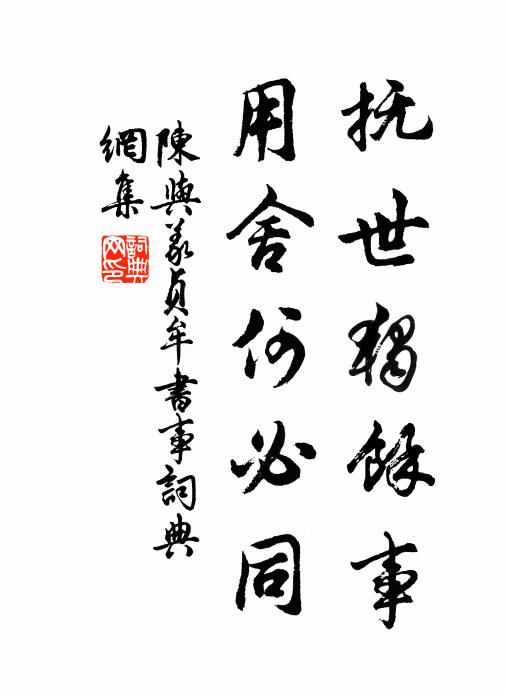 抚世独餘事
用舍何必同
陳與義貞牟書事詞典
網集
詞典網印